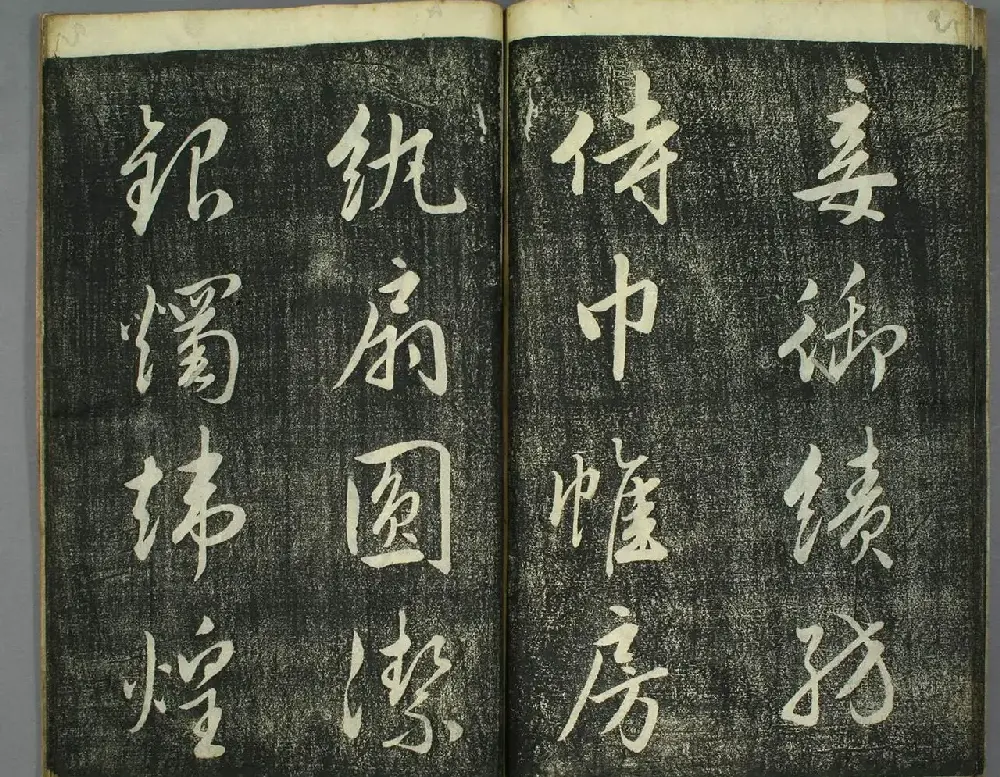 妾御績紡
侍巾帷房
紈扇圓潔
銀燭煒煌